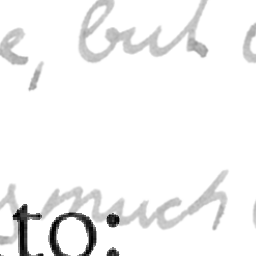 , but
much
to: